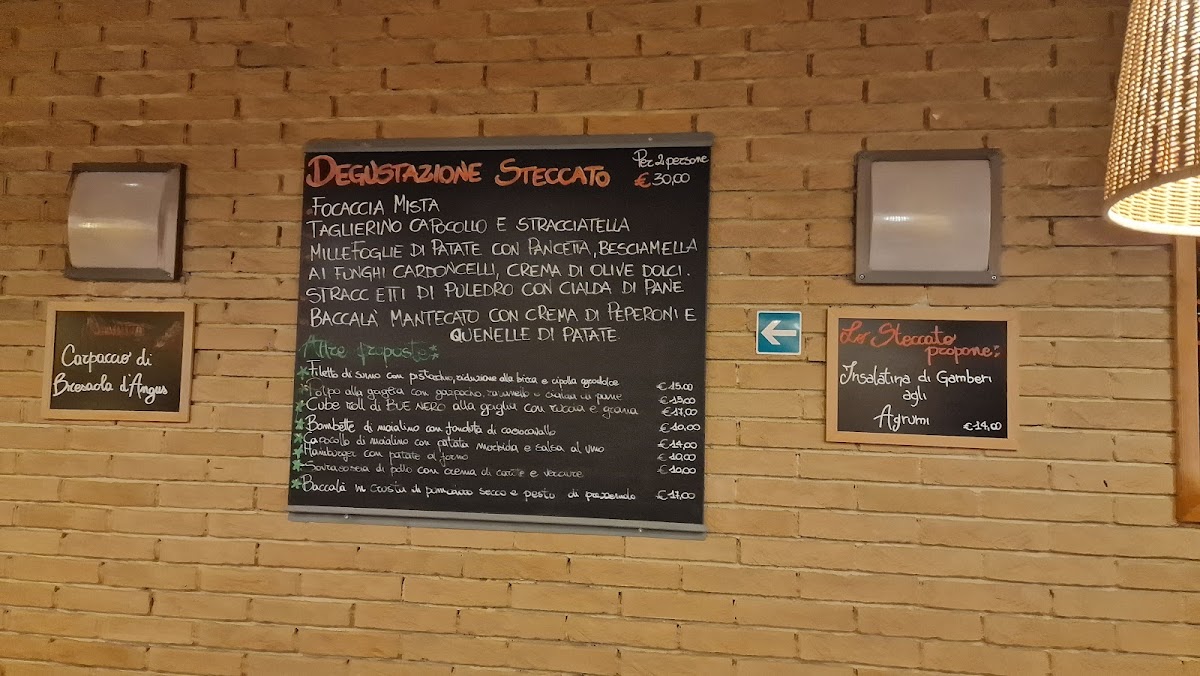 Carpaccio di
Bresaola d'Angus
DEGUSTAZIONE STECCATO
Per 2 persone
€ 30,00
FOCACCIA MISTA
TAGLIERINO CAPOCOLLO E STRACCIATELLA
MILLEFOGLIE DI PATATE CON PANCETTA, BESCIAMELLA
AI FUNGHI CARDONCELLI, CREMA DI OLIVE DOLCI.
STRACCETTI DI PULEDRO CON CIALDA DI PANE
BACCALÀ MANTECATO CON CREMA DI PEPERONI E
QUENELLE DI PATATE
Altre proposte:
Filetto di suino con pistacchio, riduzione alla birra e cipolla agrodolce € 15.00
Polpo alla griglia con gazpacho, e cialda di pane € 15,00
Cube roll di BUE NERO alla griglia con rucola e grana € 17,00
Bombette di maialino con fonduta di caciocavallo € 10,00
Capocollo di maialino con patata morbida e salsa al vino € 14,00
Hamburger con patate al forno € 10,00
Sovracoscia di pollo con crema di carote e verdure € 10,00
Baccalà in crosta di pomodoro secco e pesto di prezzemolo € 17,00
Lo Steccato
propone:
Insalatina di Gamberi
agli
Agrumi €14,00